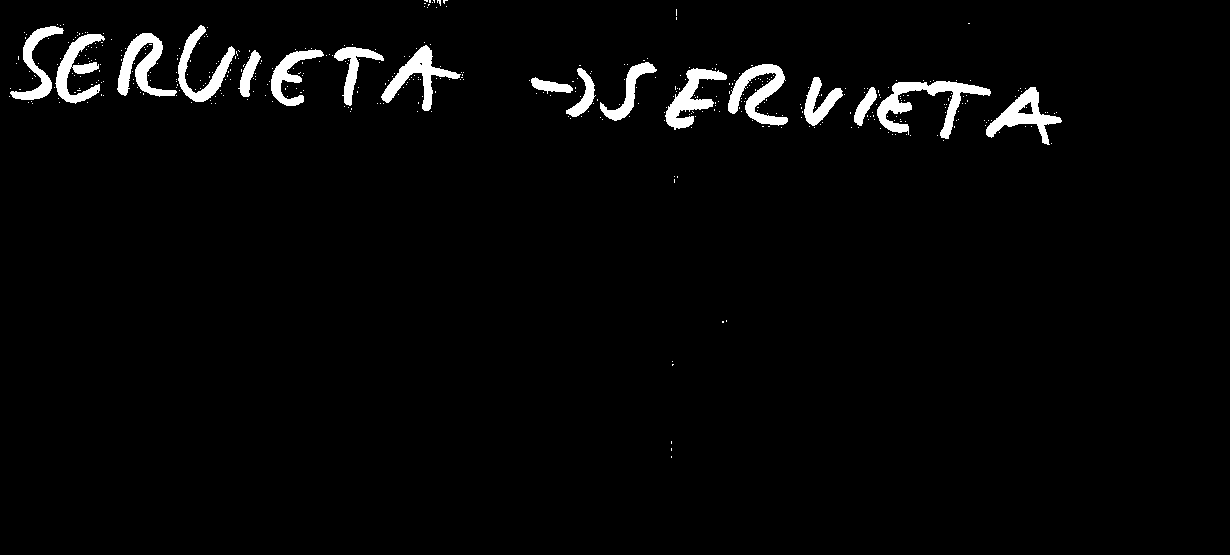 SERVIETA → SERVIETA